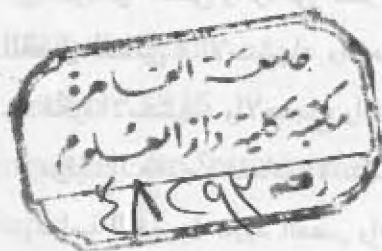 جامعة القاهرة
مكتبة كلية دار العلوم
رقم ٤٨٢٩٢